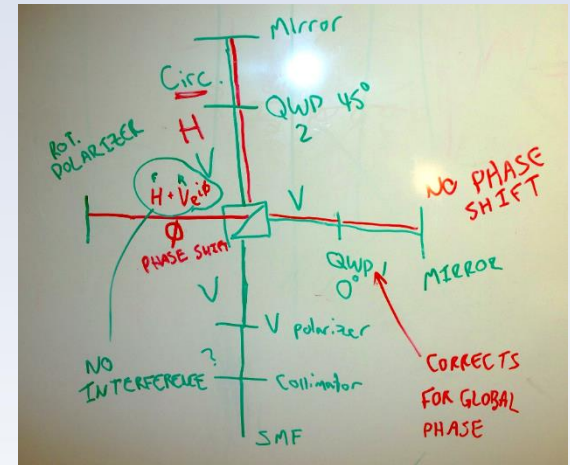 Mirror
Circ.
QWP 45°
2
H
ROT.
POLARIZER
V
H + Ve^iφ
V
NO PHASE
SHIFT
Φ
PHASE SHIFT
QWP 1
0°
MIRROR
V
V polarizer
NO
INTERFERENCE ?
Collimator
CORRECTS
FOR GLOBAL
PHASE
SMF